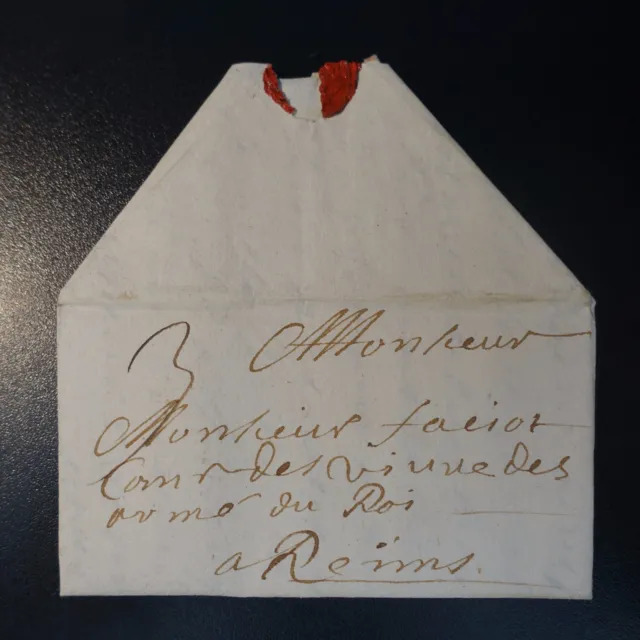 3 Monsieur
Monsieur faciot
Com.r des vivre des
armé du Roi
a Reims.